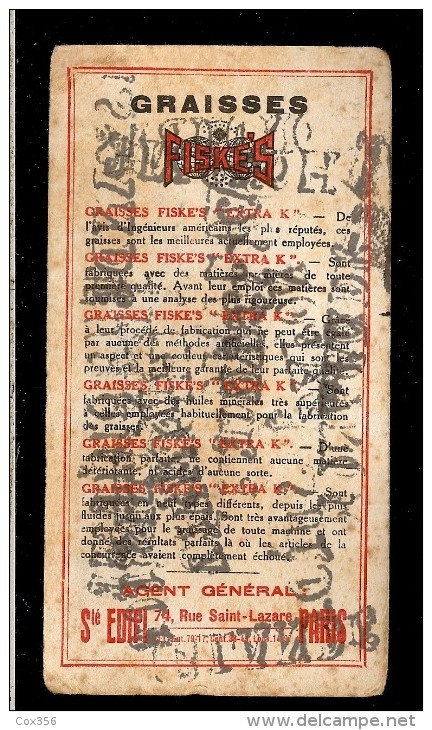 GRAISSES
FISKE'S
GRAISSES FISKE'S "EXTRA K". — De
l'avis d'Ingénieurs américains les plus réputés, ces
graisses sont les meilleures actuellement employées.
GRAISSES FISKE'S "EXTRA K". — Sont
fabriquées avec des matières premières de toute
première qualité. Avant leur emploi ces matières sont
soumises à une analyse des plus rigoureuse.
GRAISSES FISKE'S "EXTRA K". — Grâce
à leur procédé de fabrication qui ne peut être égalé
par aucune des méthodes artificielles, elles présentent
un aspect et une couleur caractéristiques qui sont les
preuves et la meilleure garantie de leur parfaite qualité.
GRAISSES FISKE'S "EXTRA K". — Sont
fabriquées avec des huiles minérales très supérieures
à celles employées habituellement pour la fabrication
des graisses.
GRAISSES FISKE'S "EXTRA K". — D'une
fabrication parfaite, ne contiennent aucune matière
détériorante, ni acides d'aucune sorte.
GRAISSES FISKE'S "EXTRA K". — Sont
fabriquées en neuf types différents, depuis les plus
fluides jusqu'aux plus épais. Sont très avantageusement
employées pour le graissage de toute machine et ont
donné des résultats parfaits là où les articles de la
concurrence avaient complètement échoué.
AGENT GÉNÉRAL :
Sté EDIPI 74, Rue Saint-Lazare PARIS
Cox356
delcampe.net